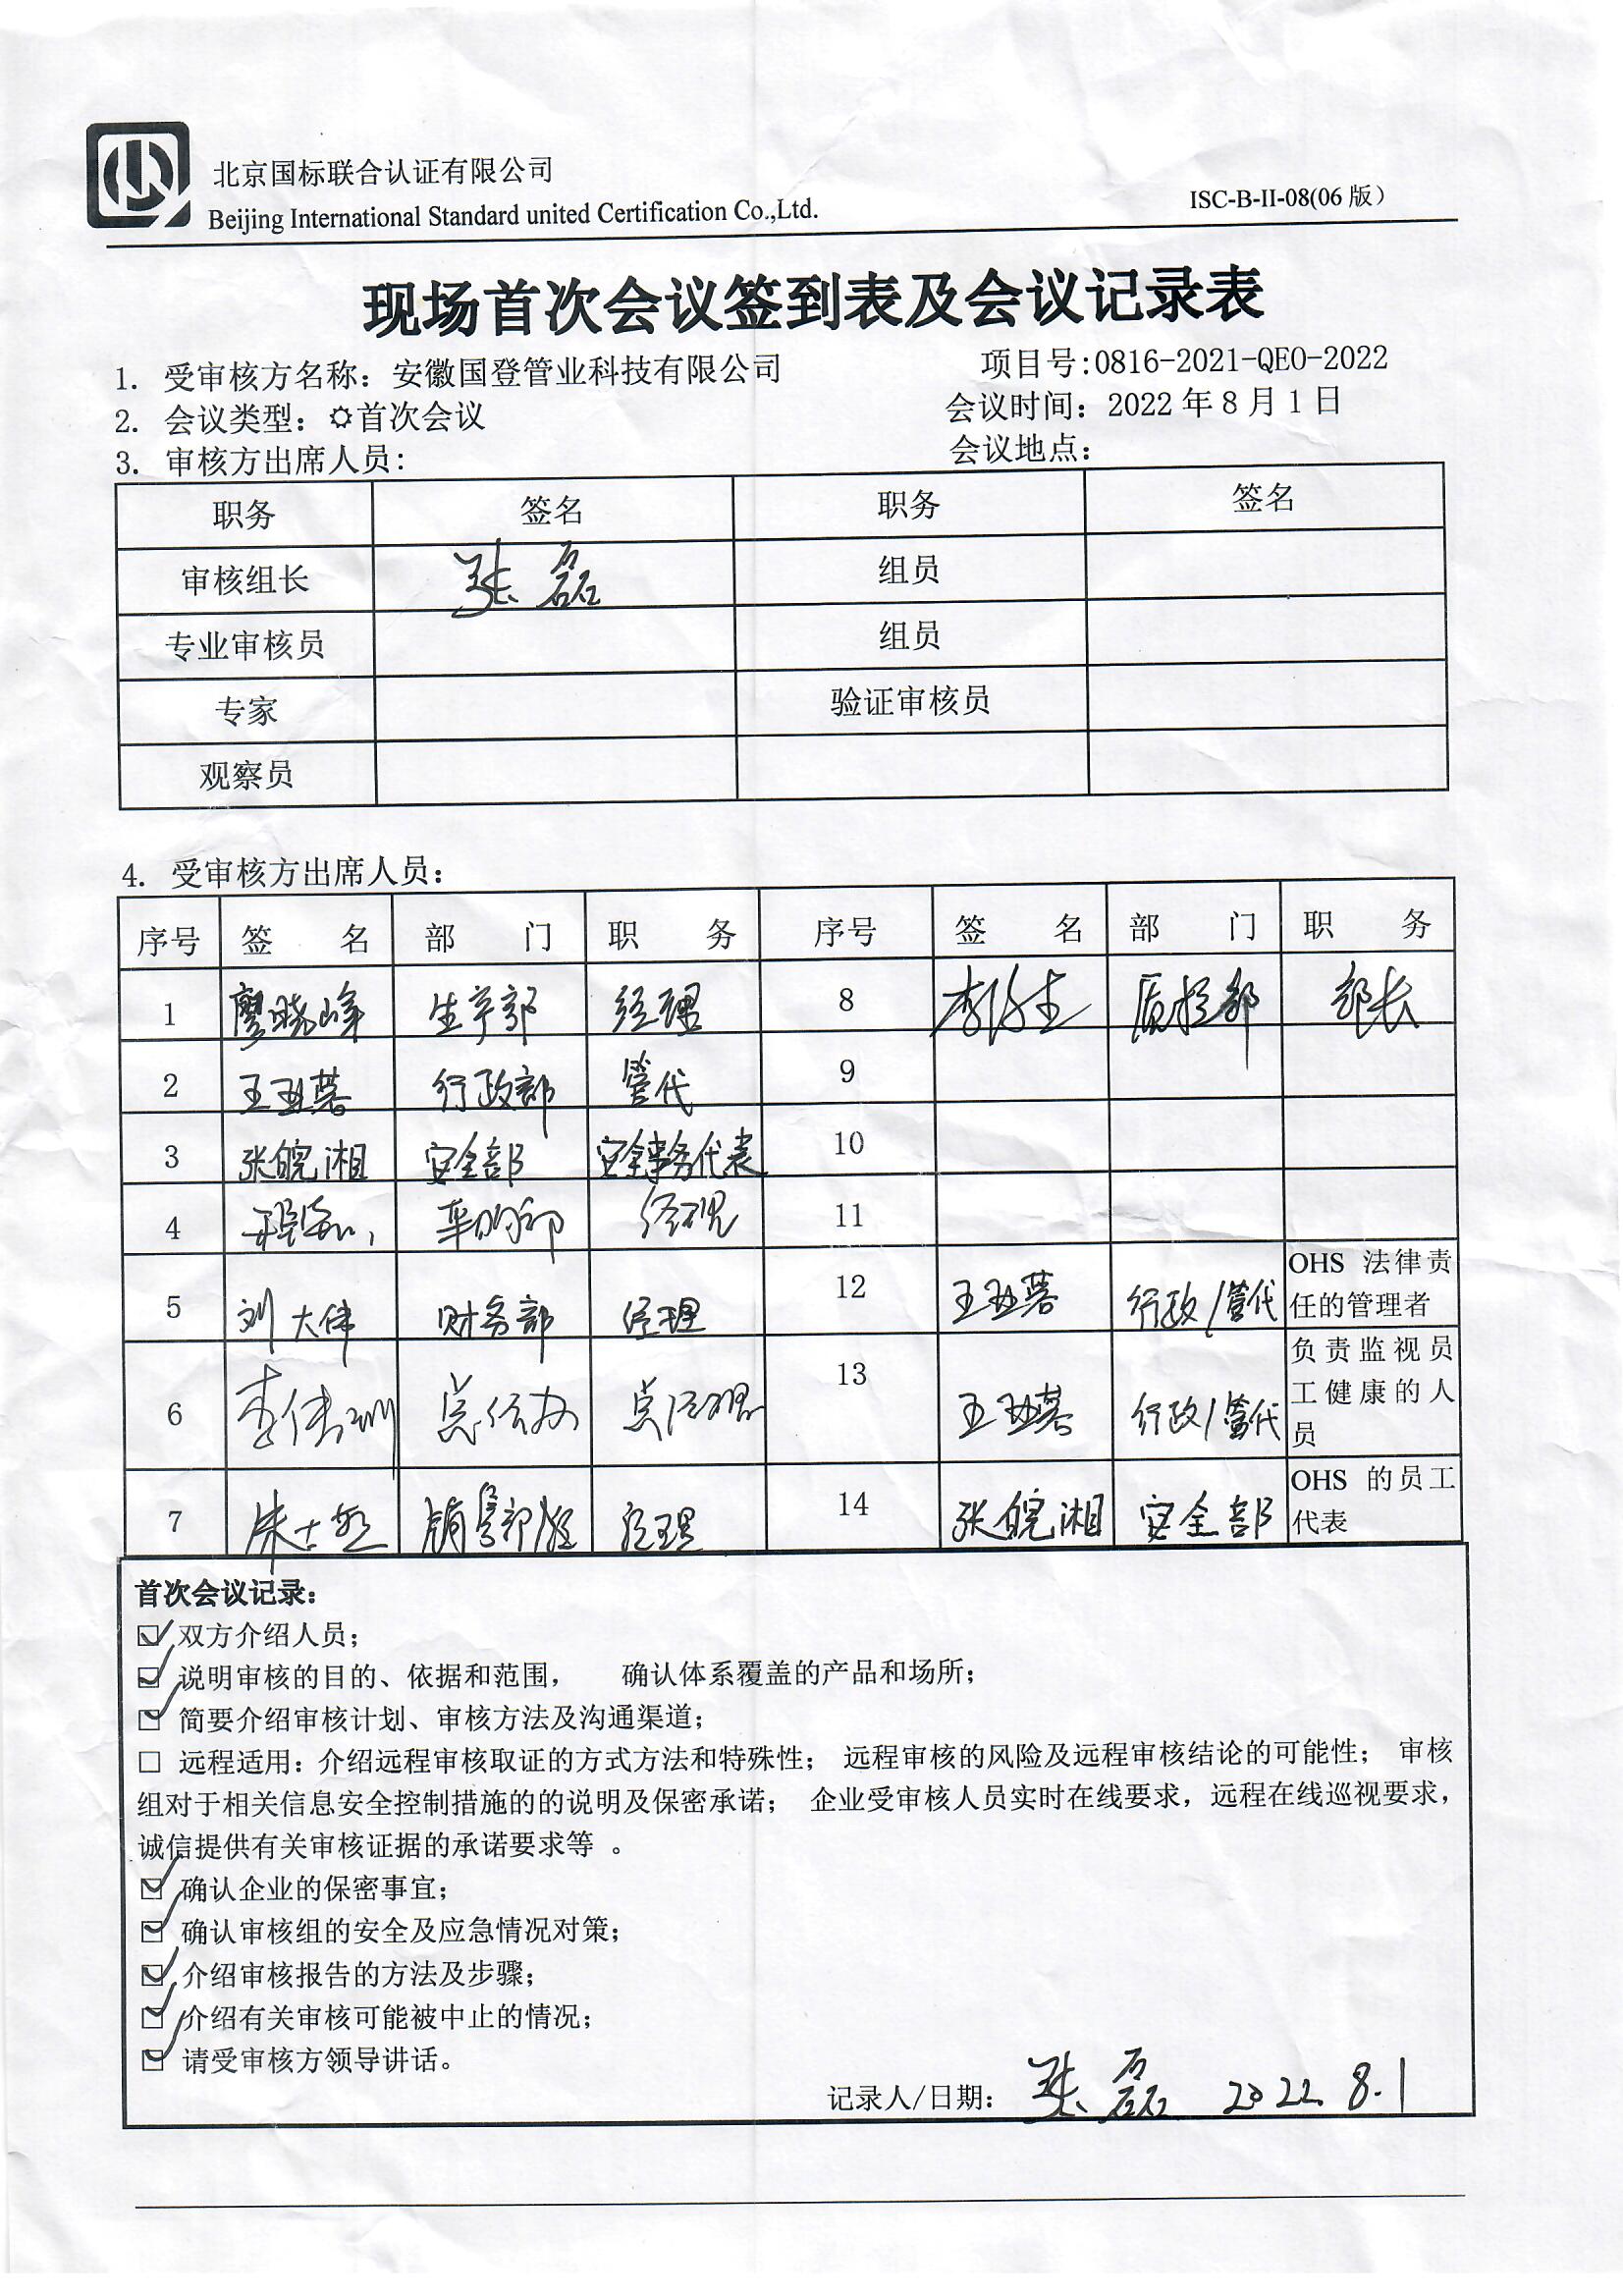 北京国标联合认证有限公司
Beijing International Standard united Certification Co.,Ltd.
ISC-B-II-08(06 版)
现场首次会议签到表及会议记录表
1. 受审核方名称：安徽国登管业科技有限公司 项目号:0816-2021-QEO-2022
2. 会议类型：首次会议 会议时间：2022 年 8 月 1 日
3. 审核方出席人员： 会议地点：
职务 签名 职务 签名
审核组长 张磊 组员
专业审核员 组员
专家 验证审核员
观察员
4. 受审核方出席人员：
序号 签 名 部 门 职 务 序号 签 名 部 门 职 务
1 廖晓峰 生产部 经理 8 质检部 部长
2 行政部 管代 9
3 张皖湘 安全部 安全事务代表 10
4 经理 11
5 刘大伟 财务部 经理 12 行政/管代 OHS 法律责
任的管理者
6 总经办 总经理 13 行政/管代 负责监视员
工健康的人
员
7 经理 14 张皖湘 安全部 OHS 的员工
代表
首次会议记录：
☑ 双方介绍人员；
☑ 说明审核的目的、依据和范围， 确认体系覆盖的产品和场所；
☑ 简要介绍审核计划、审核方法及沟通渠道；
□ 远程适用：介绍远程审核取证的方式方法和特殊性； 远程审核的风险及远程审核结论的可能性； 审核
组对于相关信息安全控制措施的的说明及保密承诺； 企业受审核人员实时在线要求，远程在线巡视要求，
诚信提供有关审核证据的承诺要求等 。
☑ 确认企业的保密事宜；
☑ 确认审核组的安全及应急情况对策；
☑ 介绍审核报告的方法及步骤；
☑ 介绍有关审核可能被中止的情况；
☑ 请受审核方领导讲话。
记录人/日期： 张磊 2022. 8.1